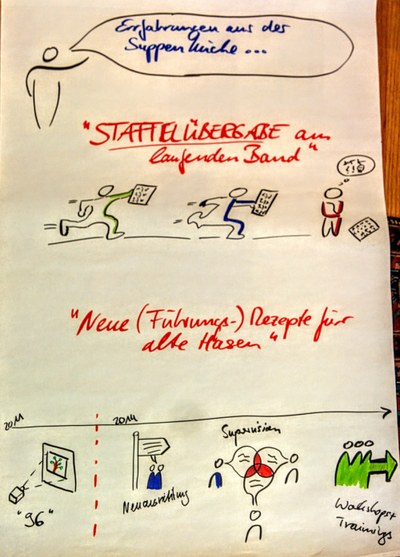 Erfahrungen aus der
Suppenküche...
"STAFFELÜBERGABE am
laufenden Band"
"Neue (Führungs-) Rezepte für
alte Hasen"
2011
2014
"96"
Neuausrichtung
Supervision
Workshops +
Trainings